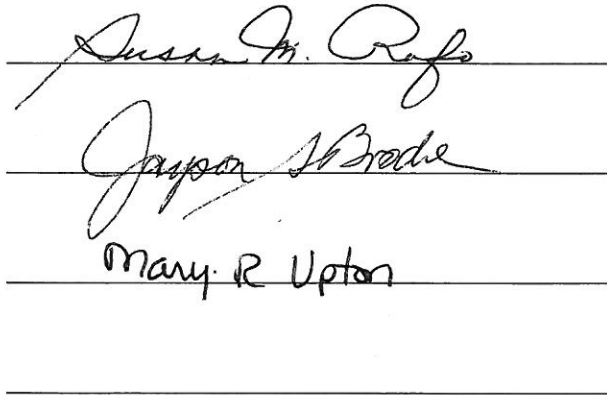 Susan M. Rafo
Jayson S Brodie
Mary R Upton